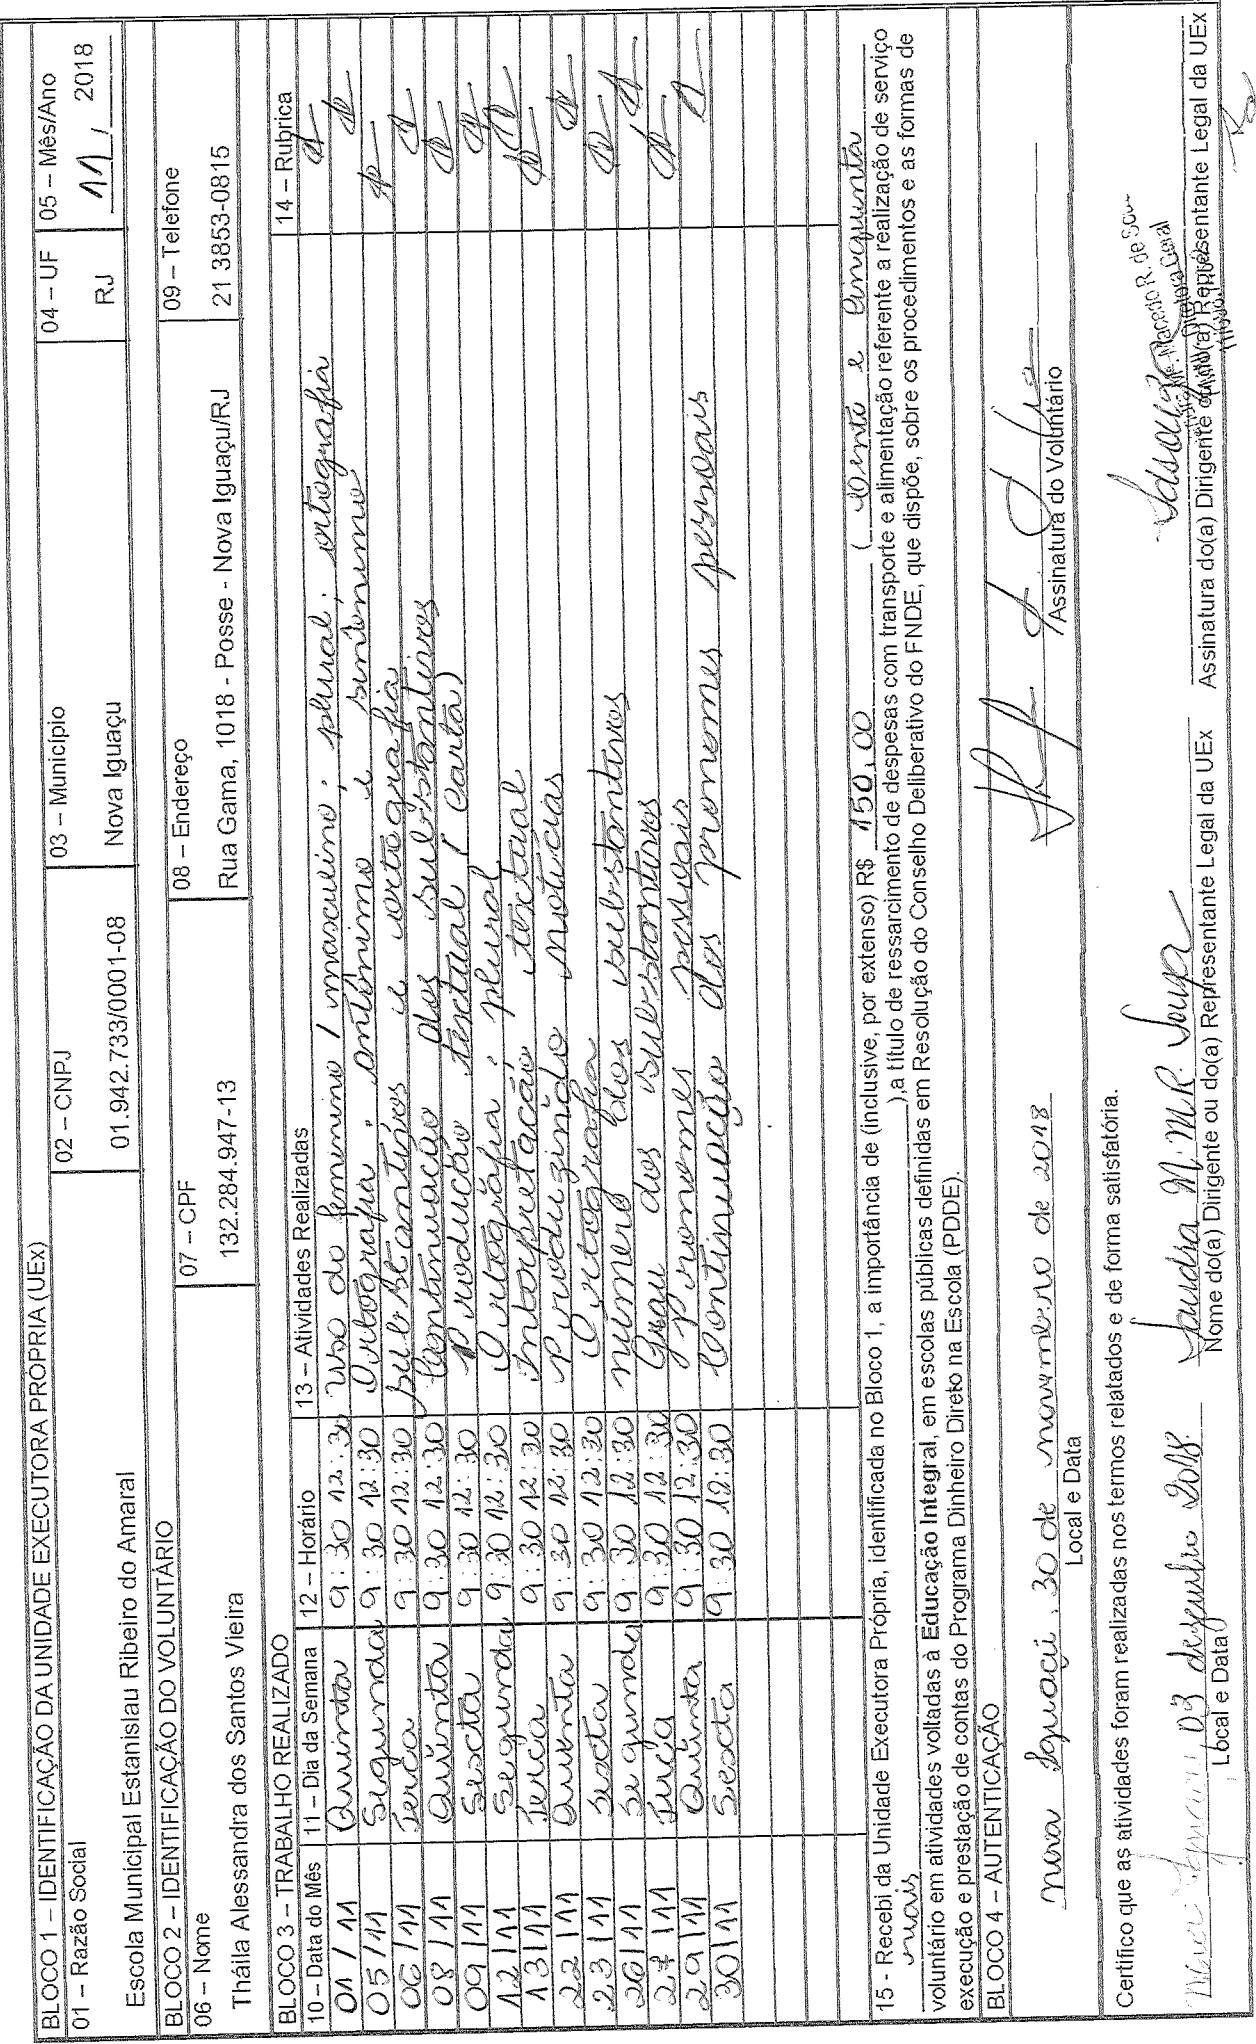 BLOCO 1 – IDENTIFICAÇÃO DA UNIDADE EXECUTORA PRÓPRIA (UEx)
01 – Razão Social
Escola Municipal Estanislau Ribeiro do Amaral
02 – CNPJ
01.942.733/0001-08
03 – Município
Nova Iguaçu
04 – UF
RJ
05 – Mês/Ano
11 / 2018
BLOCO 2 – IDENTIFICAÇÃO DO VOLUNTÁRIO
06 – Nome
Tháila Alessandra dos Santos Vieira
07 – CPF
132.284.947-13
08 – Endereço
Rua Gama, 1018 - Posse - Nova Iguaçu/RJ
09 – Telefone
21 3853-0815
BLOCO 3 – TRABALHO REALIZADO
10 – Data do Mês 11 – Dia da Semana 12 – Horário 13 – Atividades Realizadas 14 – Rubrica
01/11 Quinta 9:30 12:30 Uso do feminino / masculino; plural; ortografia
05/11 Segunda 9:30 12:30 Ortografia, antônimo e sinônimo
06/11 Terça 9:30 12:30 substantivos e ortografia
08/11 Quinta 9:30 12:30 Continuação dos substantivos
09/11 Sexta 9:30 12:30 Produção textual (carta)
12/11 Segunda 9:30 12:30 Ortografia, plural
13/11 Terça 9:30 12:30 Interpretação textual
22/11 Quinta 9:30 12:30 Produzindo notícias
23/11 Sexta 9:30 12:30 Ortografia
26/11 Segunda 9:30 12:30 número dos substantivos
27/11 Terça 9:30 12:30 Grau dos substantivos
29/11 Quinta 9:30 12:30 Pronomes pessoais
30/11 Sexta 9:30 12:30 Continuação dos pronomes pessoais
15 - Recebi da Unidade Executora Própria, identificada no Bloco 1, a importância de (inclusive, por extenso) R$ 150,00 ( cento e cinquenta
reais ),a título de ressarcimento de despesas com transporte e alimentação referente a realização de serviço
voluntário em atividades voltadas à Educação Integral, em escolas públicas definidas em Resolução do Conselho Deliberativo do FNDE, que dispõe, sobre os procedimentos e as formas de
execução e prestação de contas do Programa Dinheiro Direto na Escola (PDDE).
BLOCO 4 – AUTENTICAÇÃO
Nova Iguaçu, 30 de novembro de 2018
Local e Data
Assinatura do Voluntário
Certifico que as atividades foram realizadas nos termos relatados e de forma satisfatória.
Nova Iguaçu, 03 dezembro 2018.
Local e Data
Sandra M. M. R. Souza
Nome do(a) Dirigente ou do(a) Representante Legal da UEx
Macedo R. de Sou
Diretora Geral
Assinatura do(a) Dirigente ou do(a) Representante Legal da UEx